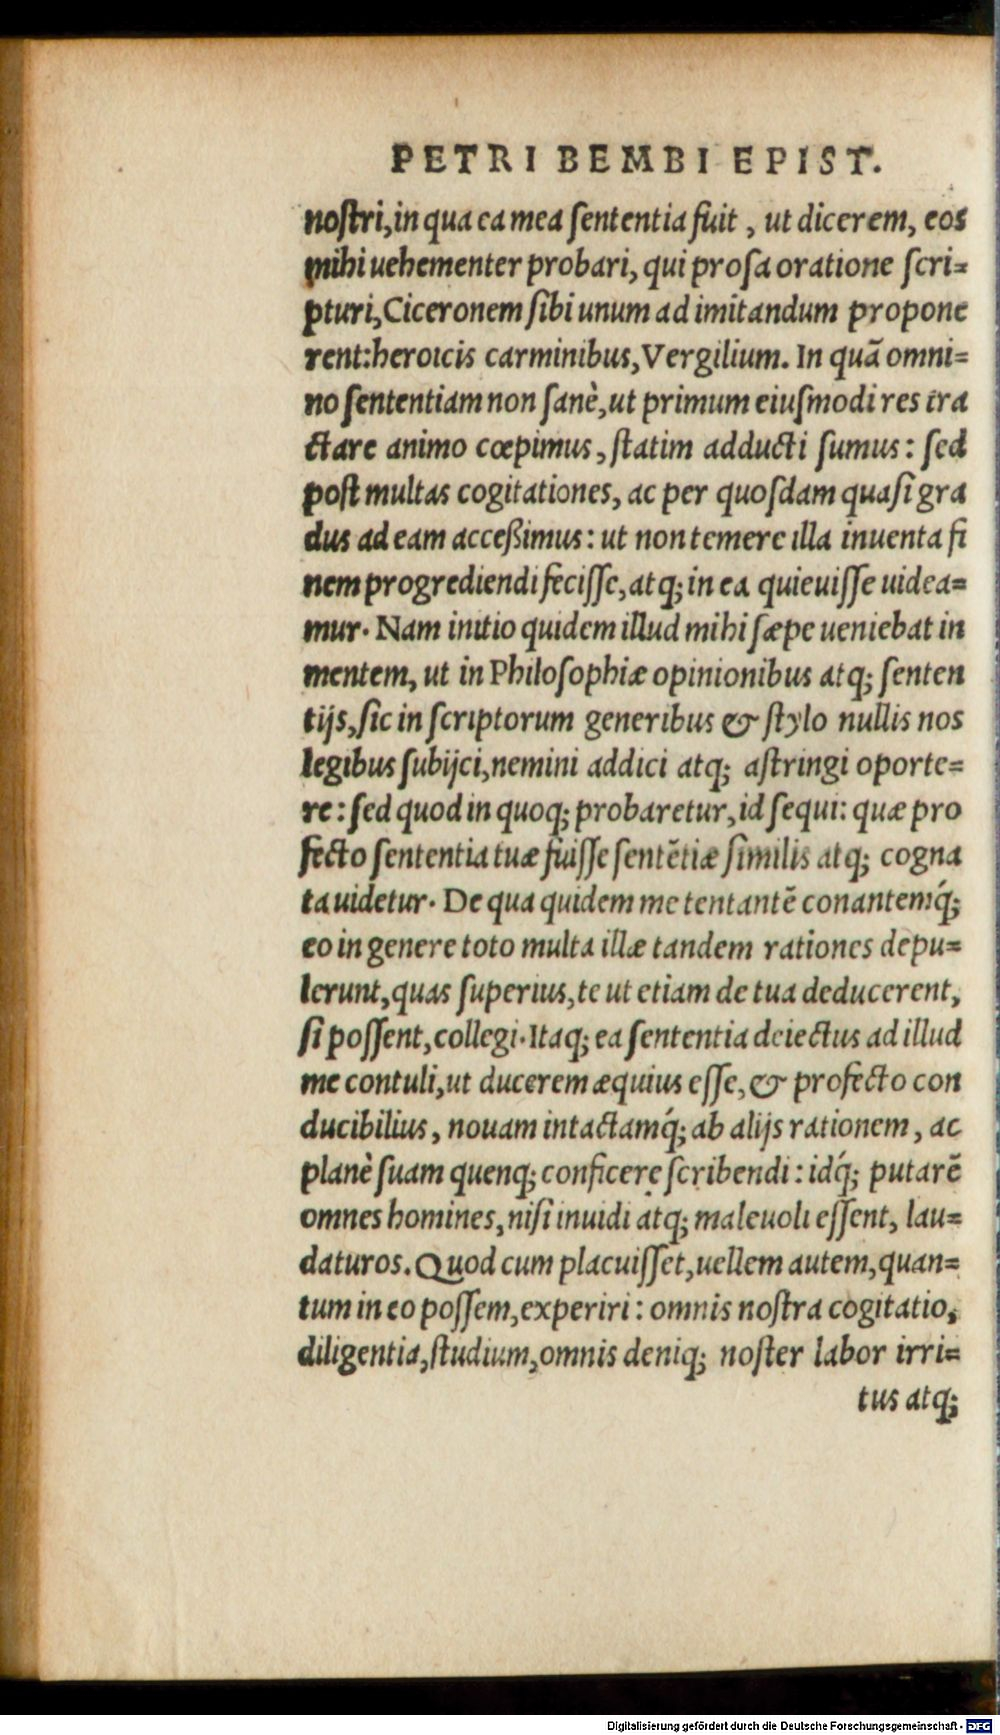 PETRI BEMBI EPIST.
noſtri, in qua ea mea ſententia fuit, ut dicerem, eos
mihi uehementer probari, qui proſa oratione ſcri=
pturi, Ciceronem ſibi unum ad imitandum propone
rent: heroicis carminibus, Vergilium. In quã omni=
no ſententiam non ſanè, ut primum eiuſmodi res tra
ctare animo cœpimus, ſtatim adducti ſumus: ſed
poſt multas cogitationes, ac per quoſdam quaſi gra
dus ad eam acceßimus: ut non temere illa inuenta fi
nem progrediendi feciſſe, atq; in ea quieuiſſe uidea=
mur. Nam initio quidem illud mihi ſæpe ueniebat in
mentem, ut in Philoſophiæ opinionibus atq; ſenten
tijs, ſic in ſcriptorum generibus & ſtylo nullis nos
legibus ſubijci, nemini addici atq; aſtringi oporte=
re: ſed quod in quoq; probaretur, id ſequi: quæ pro
fecto ſententia tuæ fuiſſe ſentẽtiæ ſimilis atq; cogna
ta uidetur. De qua quidem me tentantẽ conantemq́;
eo in genere toto multa illæ tandem rationes depu=
lerunt, quas ſuperius, te ut etiam de tua deducerent,
ſi poſſent, collegi. Itaq; ea ſententia deiectus ad illud
me contuli, ut ducerem æquius eſſe, & profecto con
ducibilius, nouam intactamq́; ab alijs rationem, ac
planè ſuam quenq; conficere ſcribendi: idq́; putarẽ
omnes homines, niſi inuidi atq; maleuoli eſſent, lau=
daturos. Quod cum placuiſſet, uellem autem, quan=
tum in eo poſſem, experiri: omnis noſtra cogitatio,
diligentia, ſtudium, omnis deniq; noſter labor irri=
tus atq;
Digitalisierung gefördert durch die Deutsche Forschungsgemeinschaft - DFG